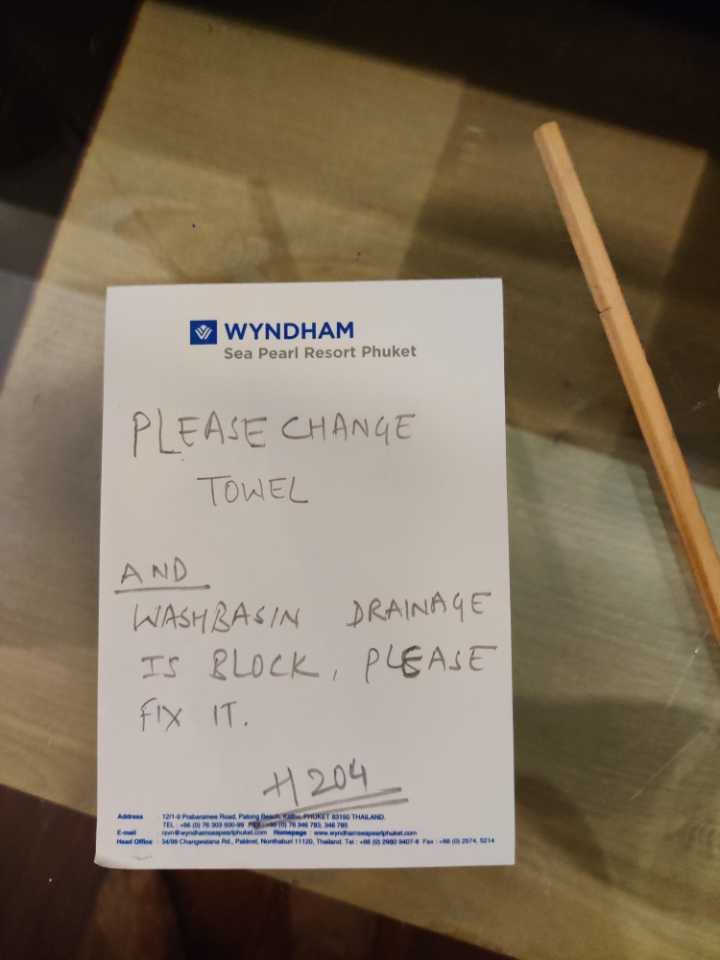 WYNDHAM
Sea Pearl Resort Phuket
PLEASE CHANGE
TOWEL
AND
WASHBASIN DRAINAGE
IS BLOCK, PLEASE
FIX IT.
H204
Address : 12/1-9 Prabaramee Road, Patong Beach, PHUKET 83150 THAILAND.
TEL : +66 (0) 76 303 500-99
E-mail Homepage : www.wyndhamseapearlphuket.com
Head Office : Changwatana Rd., Pakkred, Nonthaburi 11120, Thailand. Tel : +66 (0) 2980 9407-8 Fax : +66 (0) 2574, 5214